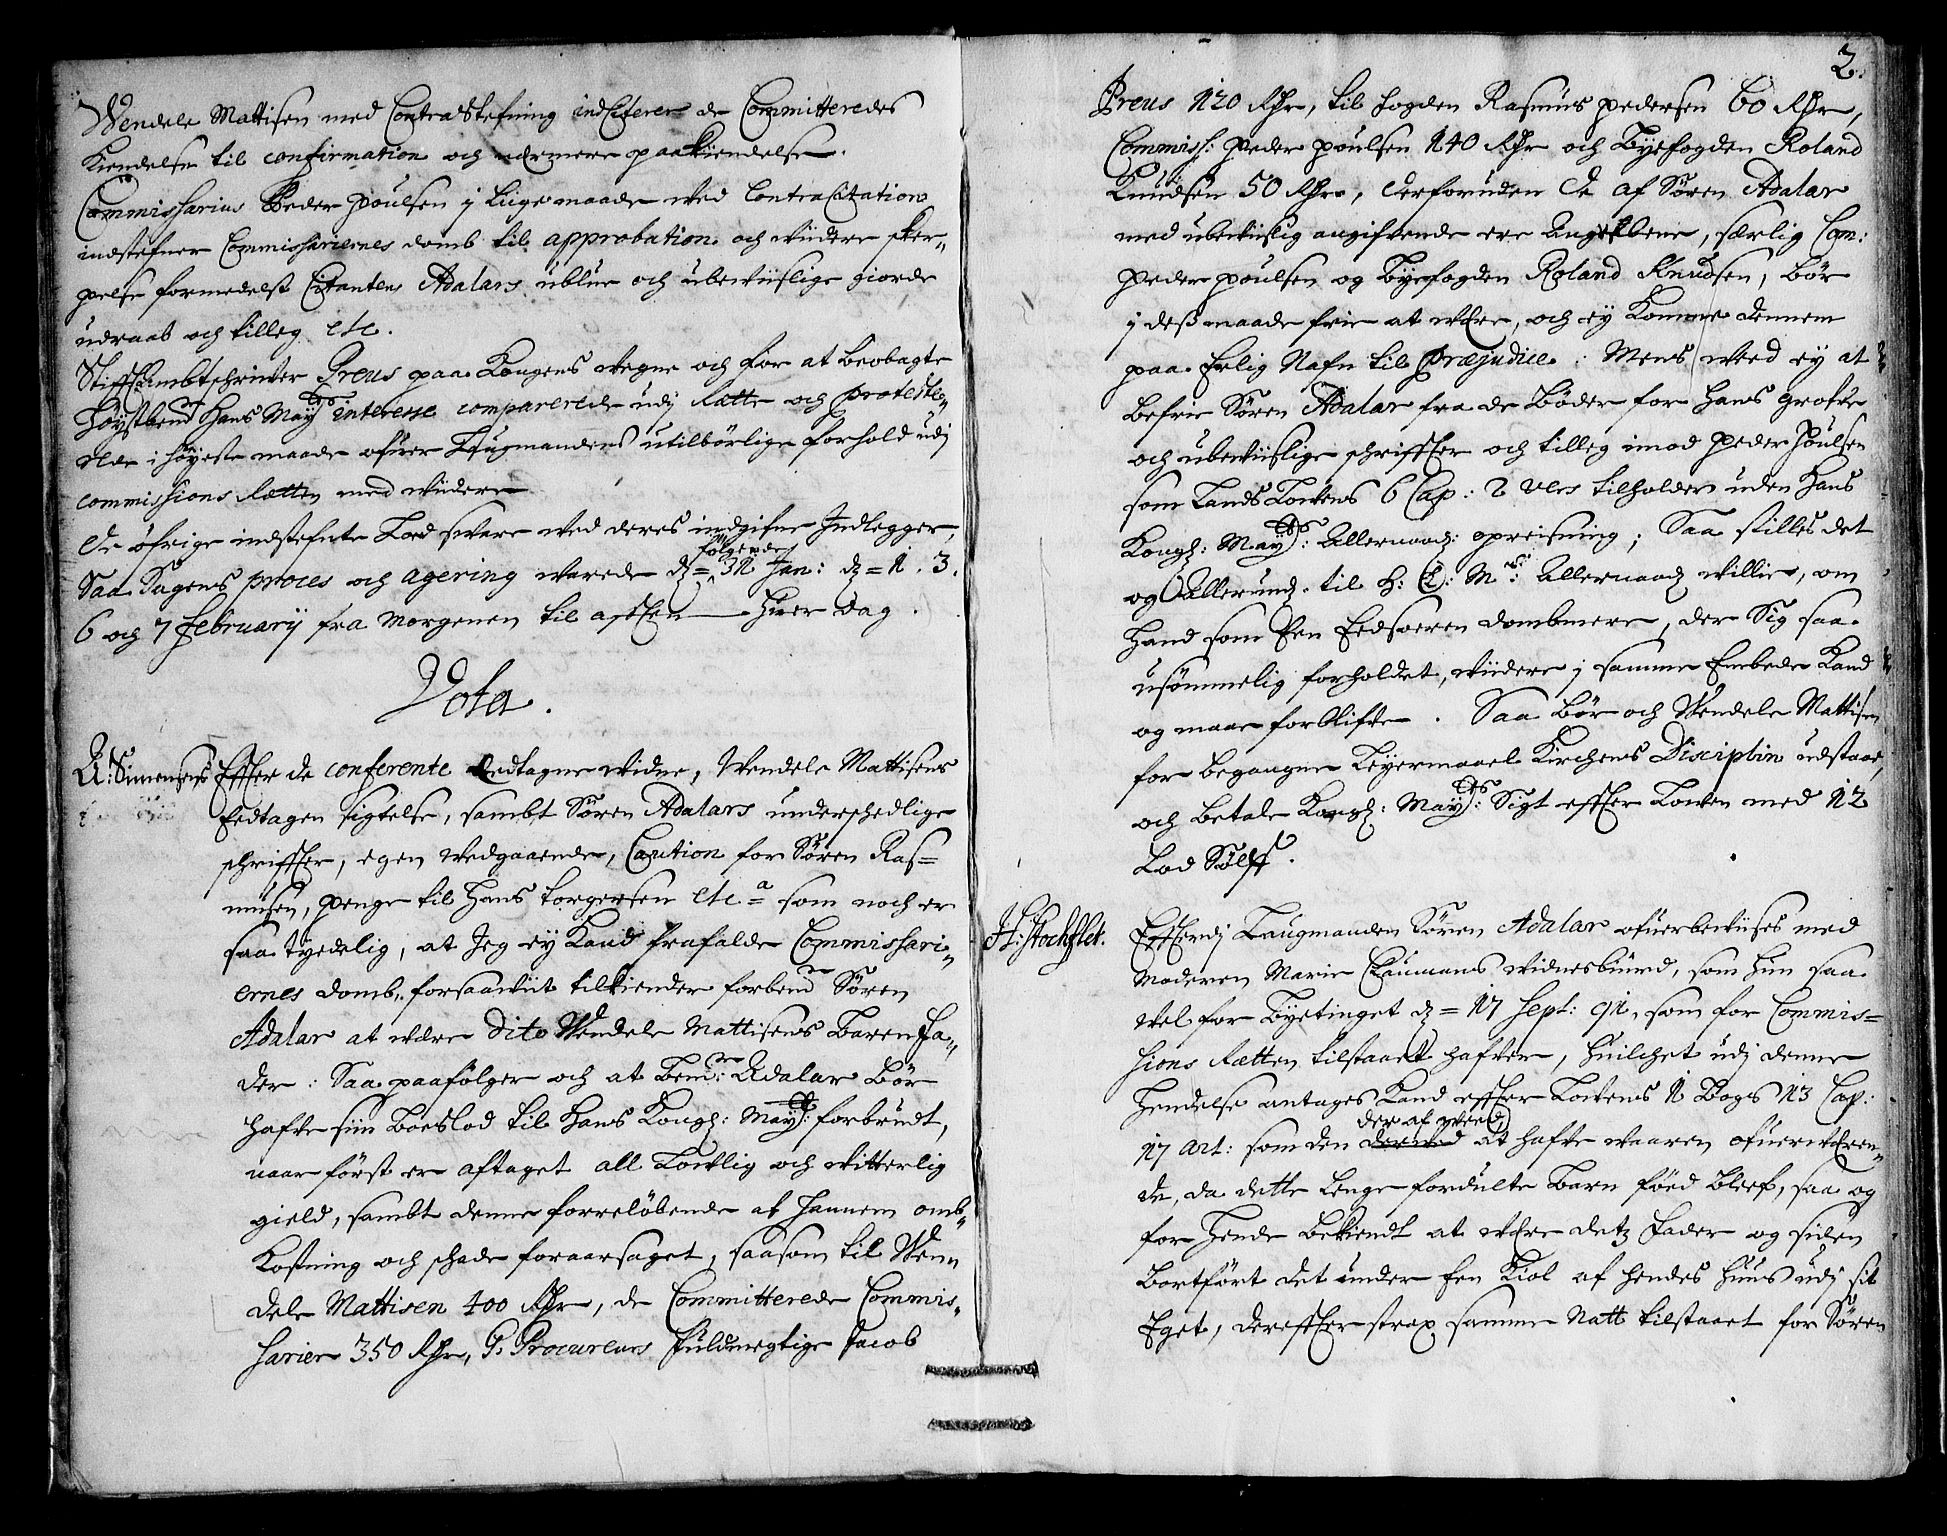 Wendele Mattisen med ContraStefning indCiterer de Committeredes
Kiendelse til confirmation och nermere paakiendelse.
Commissarius Peder Poulsen j Liige maade ved ContraCitation
indstefner Commissariernes domb til approbation och widere sker„
pelse formedelst Citantens Adalars ublue och ubeviislige giorde
udraab och tilleg etc.
StifftAmbtschriver Preus paa Kongens wegne och for at beobagte
Høystbemte Hans Mayts interesse comparerede udj Rætte och proteste„
rede i høyeste maade ofuer Laugmandens utilbørlige forhold udj
commissions Rætten med widere
De øfrige indstefnte Lod svare ved deres indgifne Indlegger,
følgende
Saa Sagens proces och agering warede dend 31 Jan: dend 1. 3.
6 och 7 february fra Morgenen til afften hver dag.
Vota.
A: Simensens Effter de conferente Eedtagne widne, Wendele Mattisens
Eedtagen sigtelse, sambt Søren Adalars underschedlige
schriffter, egen vedgaaende, Caution for Søren Ras=
musen, penge til Hans torgersen etca som noch er
saa tydelig, at Jeg ey Kand frafalde Commissari„
ernes domb, forsaaviit tilkiender forbemte Søren
Adalar at være Dito Wendele Mattisens Barn fa„
der: Saa paafølger och at bemte Adalar bør
hafve siin boeslod til Hans Kongl: Mayts: forbrudt,
naar først er aftaget all Lovlig och vitterlig
gield, sambt denne forreløbende af hannem omb„
kostning och schade foraarsaget, saasom til Wen„
dele Mattisen 400 Rdr, de Committerede Commis„
sarier 350 Rdr, G. Procureurs fuldmegtige Jacob
2.
Preus 120 Rdr, til fogden Rasmus Pedersen 60 Rdr,
Commiss: Peder Poulsen 140 Rdr och Byefogden Roland
Knudsen 50 Rdr, derforuden de af Søren Adalar
med ubeviislig angifvende ere Angrebene, særlig Com:
Peder Poulsen og Byefogden Roland Knudsen, bør
j dess maade frie at være, och ey komme dennem
paa Erlig Nafn til Præjudice: Mens med ey at
befrie Søren Adalar fra de bøder for hans grofve
och ubeviislige schriffter och tilleg imod Peder Poulsen
som Lands Lovens 6 Cap: 2 vers tilholder uden Hans
Kongl: Mayts: Allernaad: opreisning; Saa stilles det
og Allerund. til H: K: Ms: Allernaad villie, om
hand som Een Eedsoeren dombmere, der Sig saa
usømmelig forholdet, widere j samme Embede Kand
og maae forblifve. Saa bør och Wendele Mattisen
for begangne Leyermaael Kirchens Disciplin udstaae,
och betale Kongl: Mayts: Sigt effter Loven med 12
Lod Sølff.
H: Stochflet. Effterdj Laugmanden Søren Adalar ofuerbeviises med
Moderen Marie Claumans widnesbiurd, som hun saa
vel for Byetinget dend 17 Sept: 91, som for Commis=
sions Rætten tilstaaet hafver, huilchet udj denne
Hendelse antages Kand effter Lovens 1 Bogs 13 Cap:
der af weed,
17 Art: som den derved at hafve waaren ofuerværen„
de, da dette Lenge fordulte Barn føed bleef, saa og
for hende bekiendt at være detz fader og siden
bortført det under een Kiol af hendes Huus udj sit
Eget, dereffter strax samme Natt tilstaaet for Søren